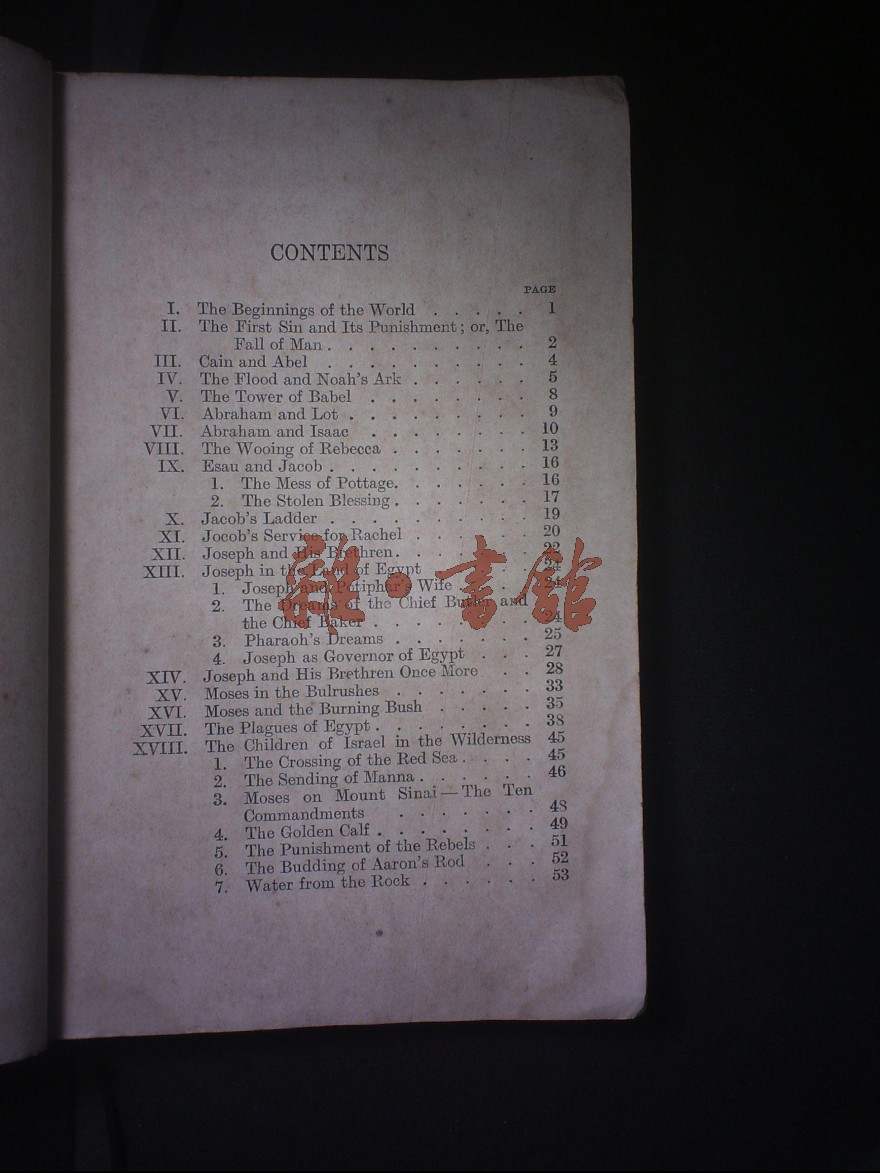 CONTENTS
PAGE
I. The Beginnings of the World . . . . . 1
II. The First Sin and Its Punishment; or, The
Fall of Man . . . . . . . . . . 2
III. Cain and Abel . . . . . . . . . . 4
IV. The Flood and Noah's Ark . . . . . . 5
V. The Tower of Babel . . . . . . . . 8
VI. Abraham and Lot . . . . . . . . . 9
VII. Abraham and Isaac . . . . . . . . 10
VIII. The Wooing of Rebecca . . . . . . . 13
IX. Esau and Jacob . . . . . . . . . . 16
1. The Mess of Pottage . . . . . . . 16
2. The Stolen Blessing . . . . . . . 17
X. Jacob's Ladder . . . . . . . . . . 19
XI. Jocob's Service for Rachel . . . . . . 20
XII. Joseph and His Brethren . . . . . . . 22
XIII. Joseph in the Land of Egypt . . . . . 24
1. Joseph and Potiphar's Wife . . . . 24
2. The Dreams of the Chief Butler and
the Chief Baker . . . . . . . . 24
3. Pharaoh's Dreams . . . . . . . 25
4. Joseph as Governor of Egypt . . . 27
XIV. Joseph and His Brethren Once More . . 28
XV. Moses in the Bulrushes . . . . . . . 33
XVI. Moses and the Burning Bush . . . . . 35
XVII. The Plagues of Egypt . . . . . . . . 38
XVIII. The Children of Israel in the Wilderness 45
1. The Crossing of the Red Sea . . . . 45
2. The Sending of Manna . . . . . . 46
3. Moses on Mount Sinai — The Ten
Commandments . . . . . . . 48
4. The Golden Calf . . . . . . . . 49
5. The Punishment of the Rebels . . . 51
6. The Budding of Aaron's Rod . . . 52
7. Water from the Rock . . . . . . 53